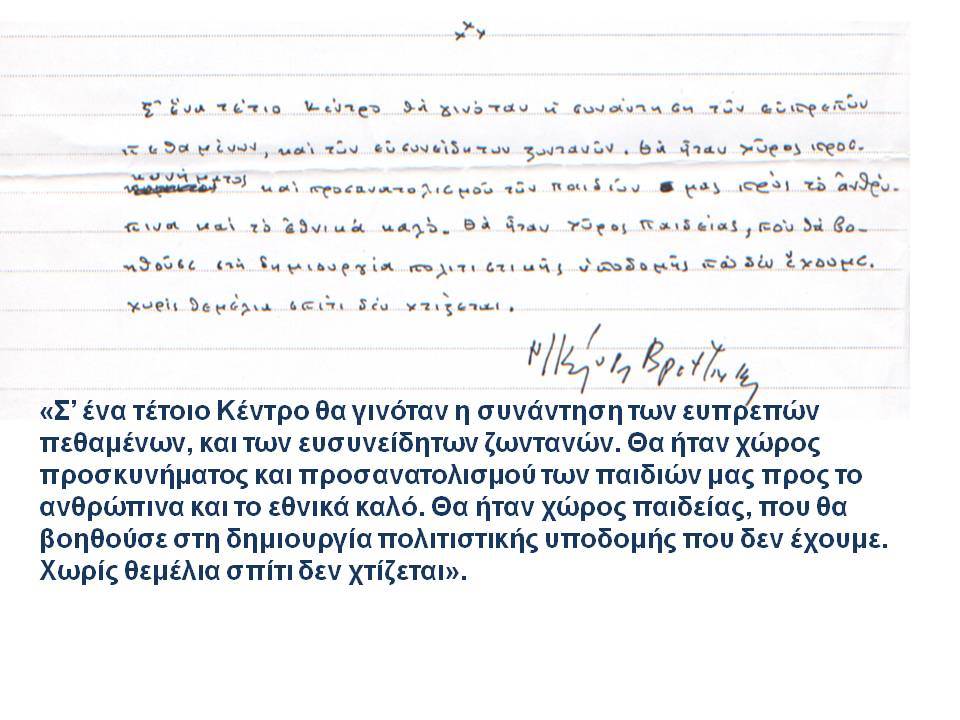 Σ' ἕνα τέτιο Κέντρο θὰ γινόταν ἡ συνάντηση τῶν εὐπρεπῶν
πεθαμένων, καὶ τῶν εὐσυνείδητων ζωντανῶν. Θὰ ἦταν χῶρος προσ-
κυνήματος
καὶ προσανατολισμοῦ τῶν παιδιῶν μας πρὸς τὸ ἀνθρώ-
πινα καὶ τὸ ἐθνικά καλό. Θὰ ἦταν χῶρος παιδείας, ποὺ θὰ βο-
ηθοῦσε στὴ δημιουργία πολιτιστικῆς ὑποδομῆς ποὺ δὲν ἔχουμε.
Χωρὶς θεμέλια σπίτι δὲν χτίζεται.
«Σ’ ένα τέτοιο Κέντρο θα γινόταν η συνάντηση των ευπρεπών
πεθαμένων, και των ευσυνείδητων ζωντανών. Θα ήταν χώρος
προσκυνήματος και προσανατολισμού των παιδιών μας προς το
ανθρώπινα και το εθνικά καλό. Θα ήταν χώρος παιδείας, που θα
βοηθούσε στη δημιουργία πολιτιστικής υποδομής που δεν έχουμε.
Χωρίς θεμέλια σπίτι δεν χτίζεται».